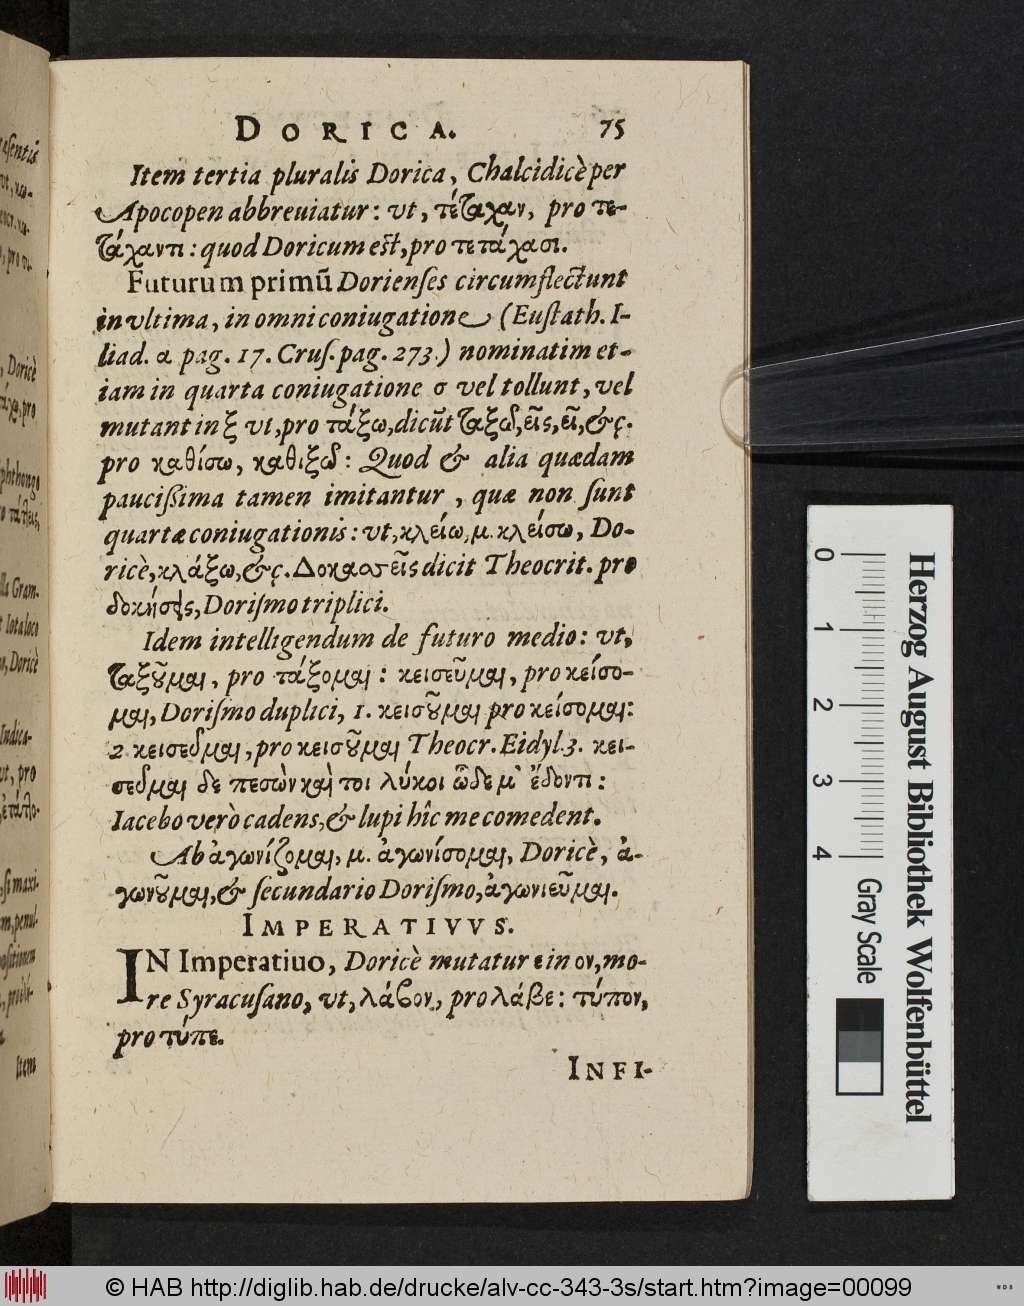 DORICA. 75
Item tertia pluralis Dorica, Chalcidicè per
Apocopen abbreuiatur: vt, τέταχαν, pro τε-
τάχαντι: quod Doricum est, pro τετάχασι.
Futurum primū Dorienses circumflectunt
in vltima, in omni coniugatione (Eustath. I-
liad. α pag. 17. Crus. pag. 273.) nominatim et-
iam in quarta coniugatione σ vel tollunt, vel
mutant in ξ vt, pro τάξω, dicūt ταξῶ, εῖς, εῖ, &ç.
pro καθίσω, καθιξῶ: Quod & alia quædam
paucißima tamen imitantur, quæ non sunt
quartæ coniugationis: vt, κλείω, μ. κλείσω, Do-
ricè, κλάξω, &ç. Δοκασεῖς dicit Theocrit. pro
δοκήσεις, Dorismo triplici.
Idem intelligendum de futuro medio: vt,
ταξοῦμαι, pro τάξομαι: κεισεῦμαι, pro κείσο-
μαι, Dorismo duplici, 1. κεισοῦμαι pro κείσομαι:
2 κεισεῦμαι, pro κεισοῦμαι Theocr. Eidyl. 3. κει-
σεῦμαι δε πεσὼν καὶ τοι λύκοι ὧδε μ' ἔδοντι:
Iacebo verò cadens, & lupi hîc me comedent.
Ab ἀγωνίζομαι, μ. ἀγωνίσομαι, Doricè, ἀ-
γωνοῦμαι, & secundario Dorismo, ἀγωνιεῦμαι.
IMPERATIVVS.
IN Imperatiuo, Doricè mutatur ε in ον, mo-
re Syracusano, vt, λάβον, pro λάβε: τύπον,
pro τύπε.
INFI-
0 1 2 3 4
Herzog August Bibliothek Wolfenbüttel
Gray Scale
© HAB http://diglib.hab.de/drucke/alv-cc-343-3s/start.htm?image=00099